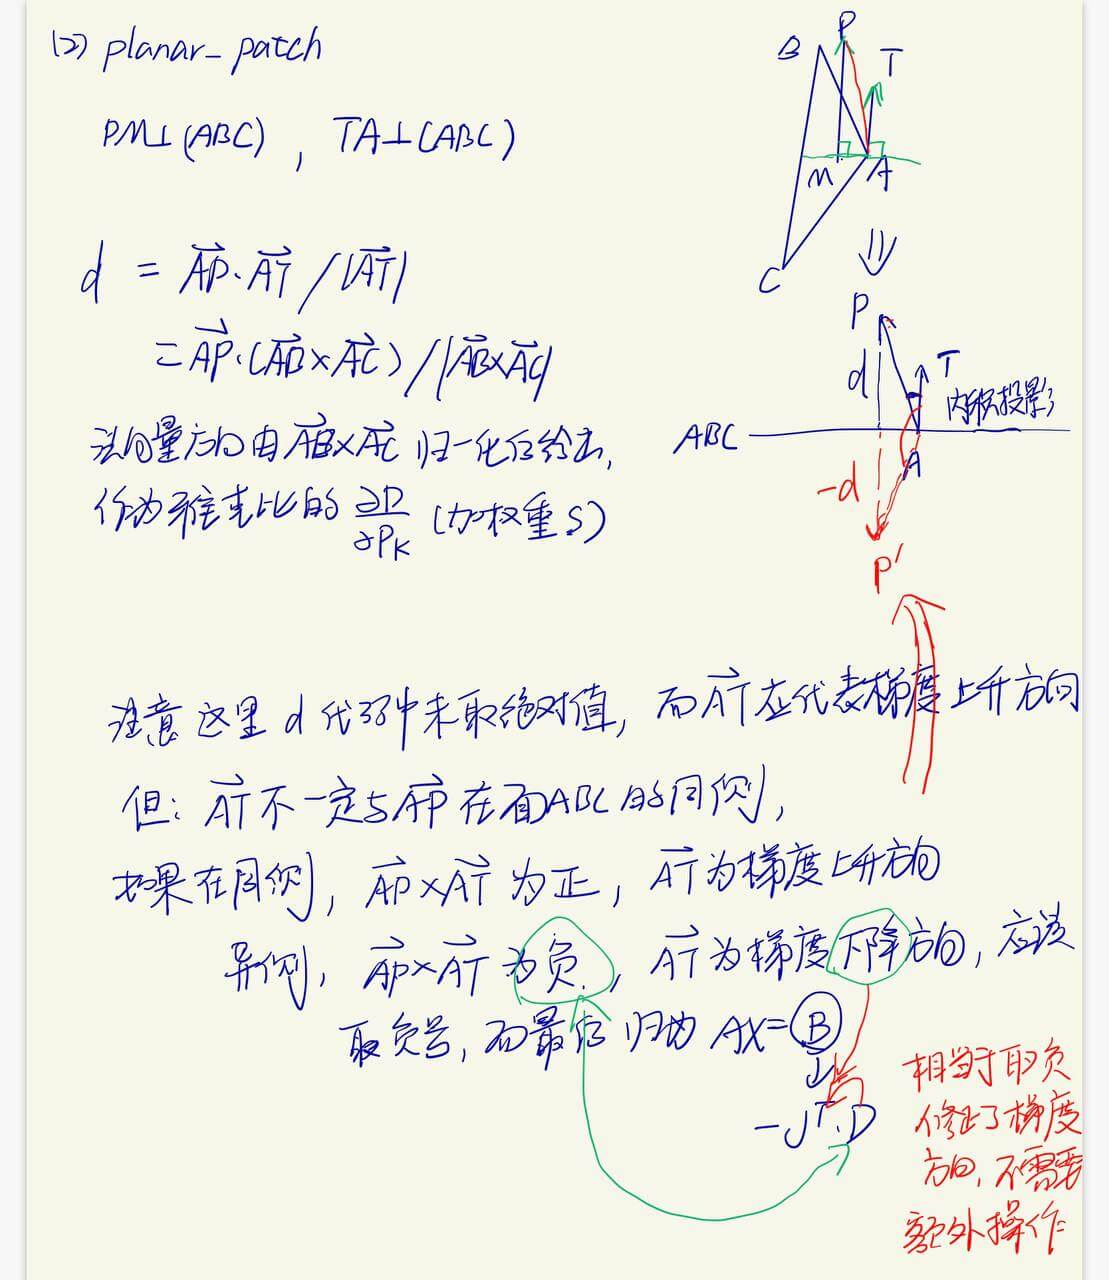 (2) planar_patch
PM⊥(ABC), TA⊥(ABC)
B P T
M A
C
d = AP⃗·AT⃗/|AT⃗|
= AP⃗·(AB⃗×AC⃗)/|AB⃗×AC⃗|
P
d T 内积投影
ABC
A
-d
P'
法向量方向由AB⃗×AC⃗归一化后给出,
作为雅克比的 ∂D/∂P_K (加权重S)
注意这里d代码中未取绝对值, 而AT⃗应代表梯度上升方向
但: AT⃗不一定与AP⃗在面ABC的同侧,
如果在同侧, AP⃗×AT⃗为正, AT⃗为梯度上升方向
异侧, AP⃗×AT⃗为负, AT⃗为梯度下降方向, 应该
取负号, 而最后归为 AX=B
-Jᵀ·D
相当于取负
修正了梯度
方向, 不需要
额外操作